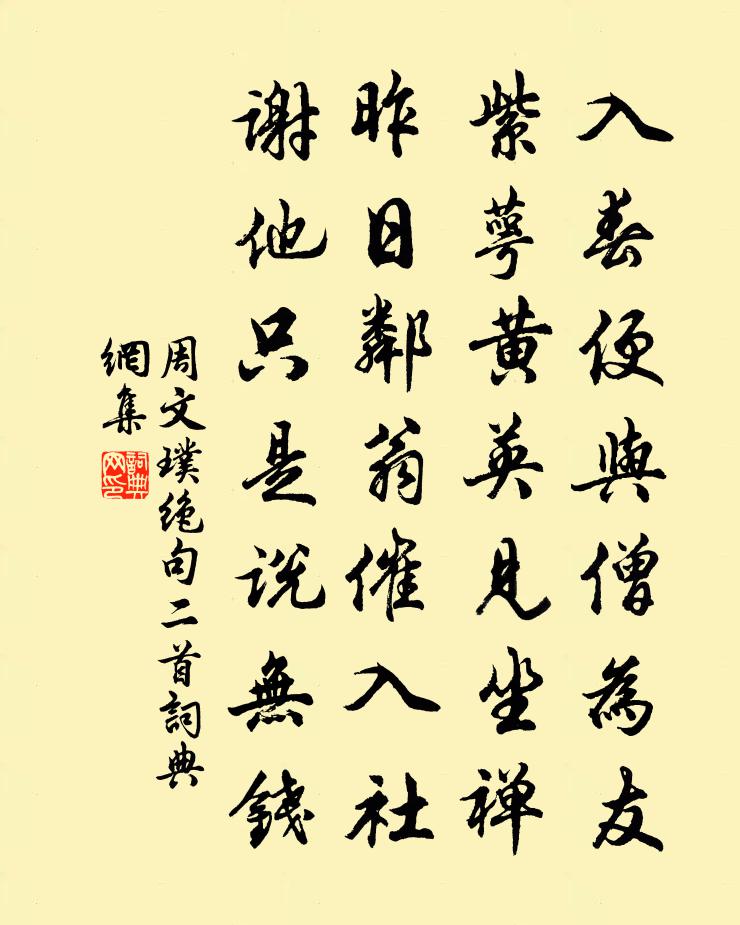 入春便與僧為友
紫萼黃英見坐禅
昨日鄰翁催入社
謝他只是説無錢
周文璞絶句二首詞典
網集
詞典網印